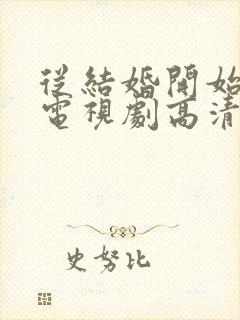 從結婚開始
電視劇高清
史努比